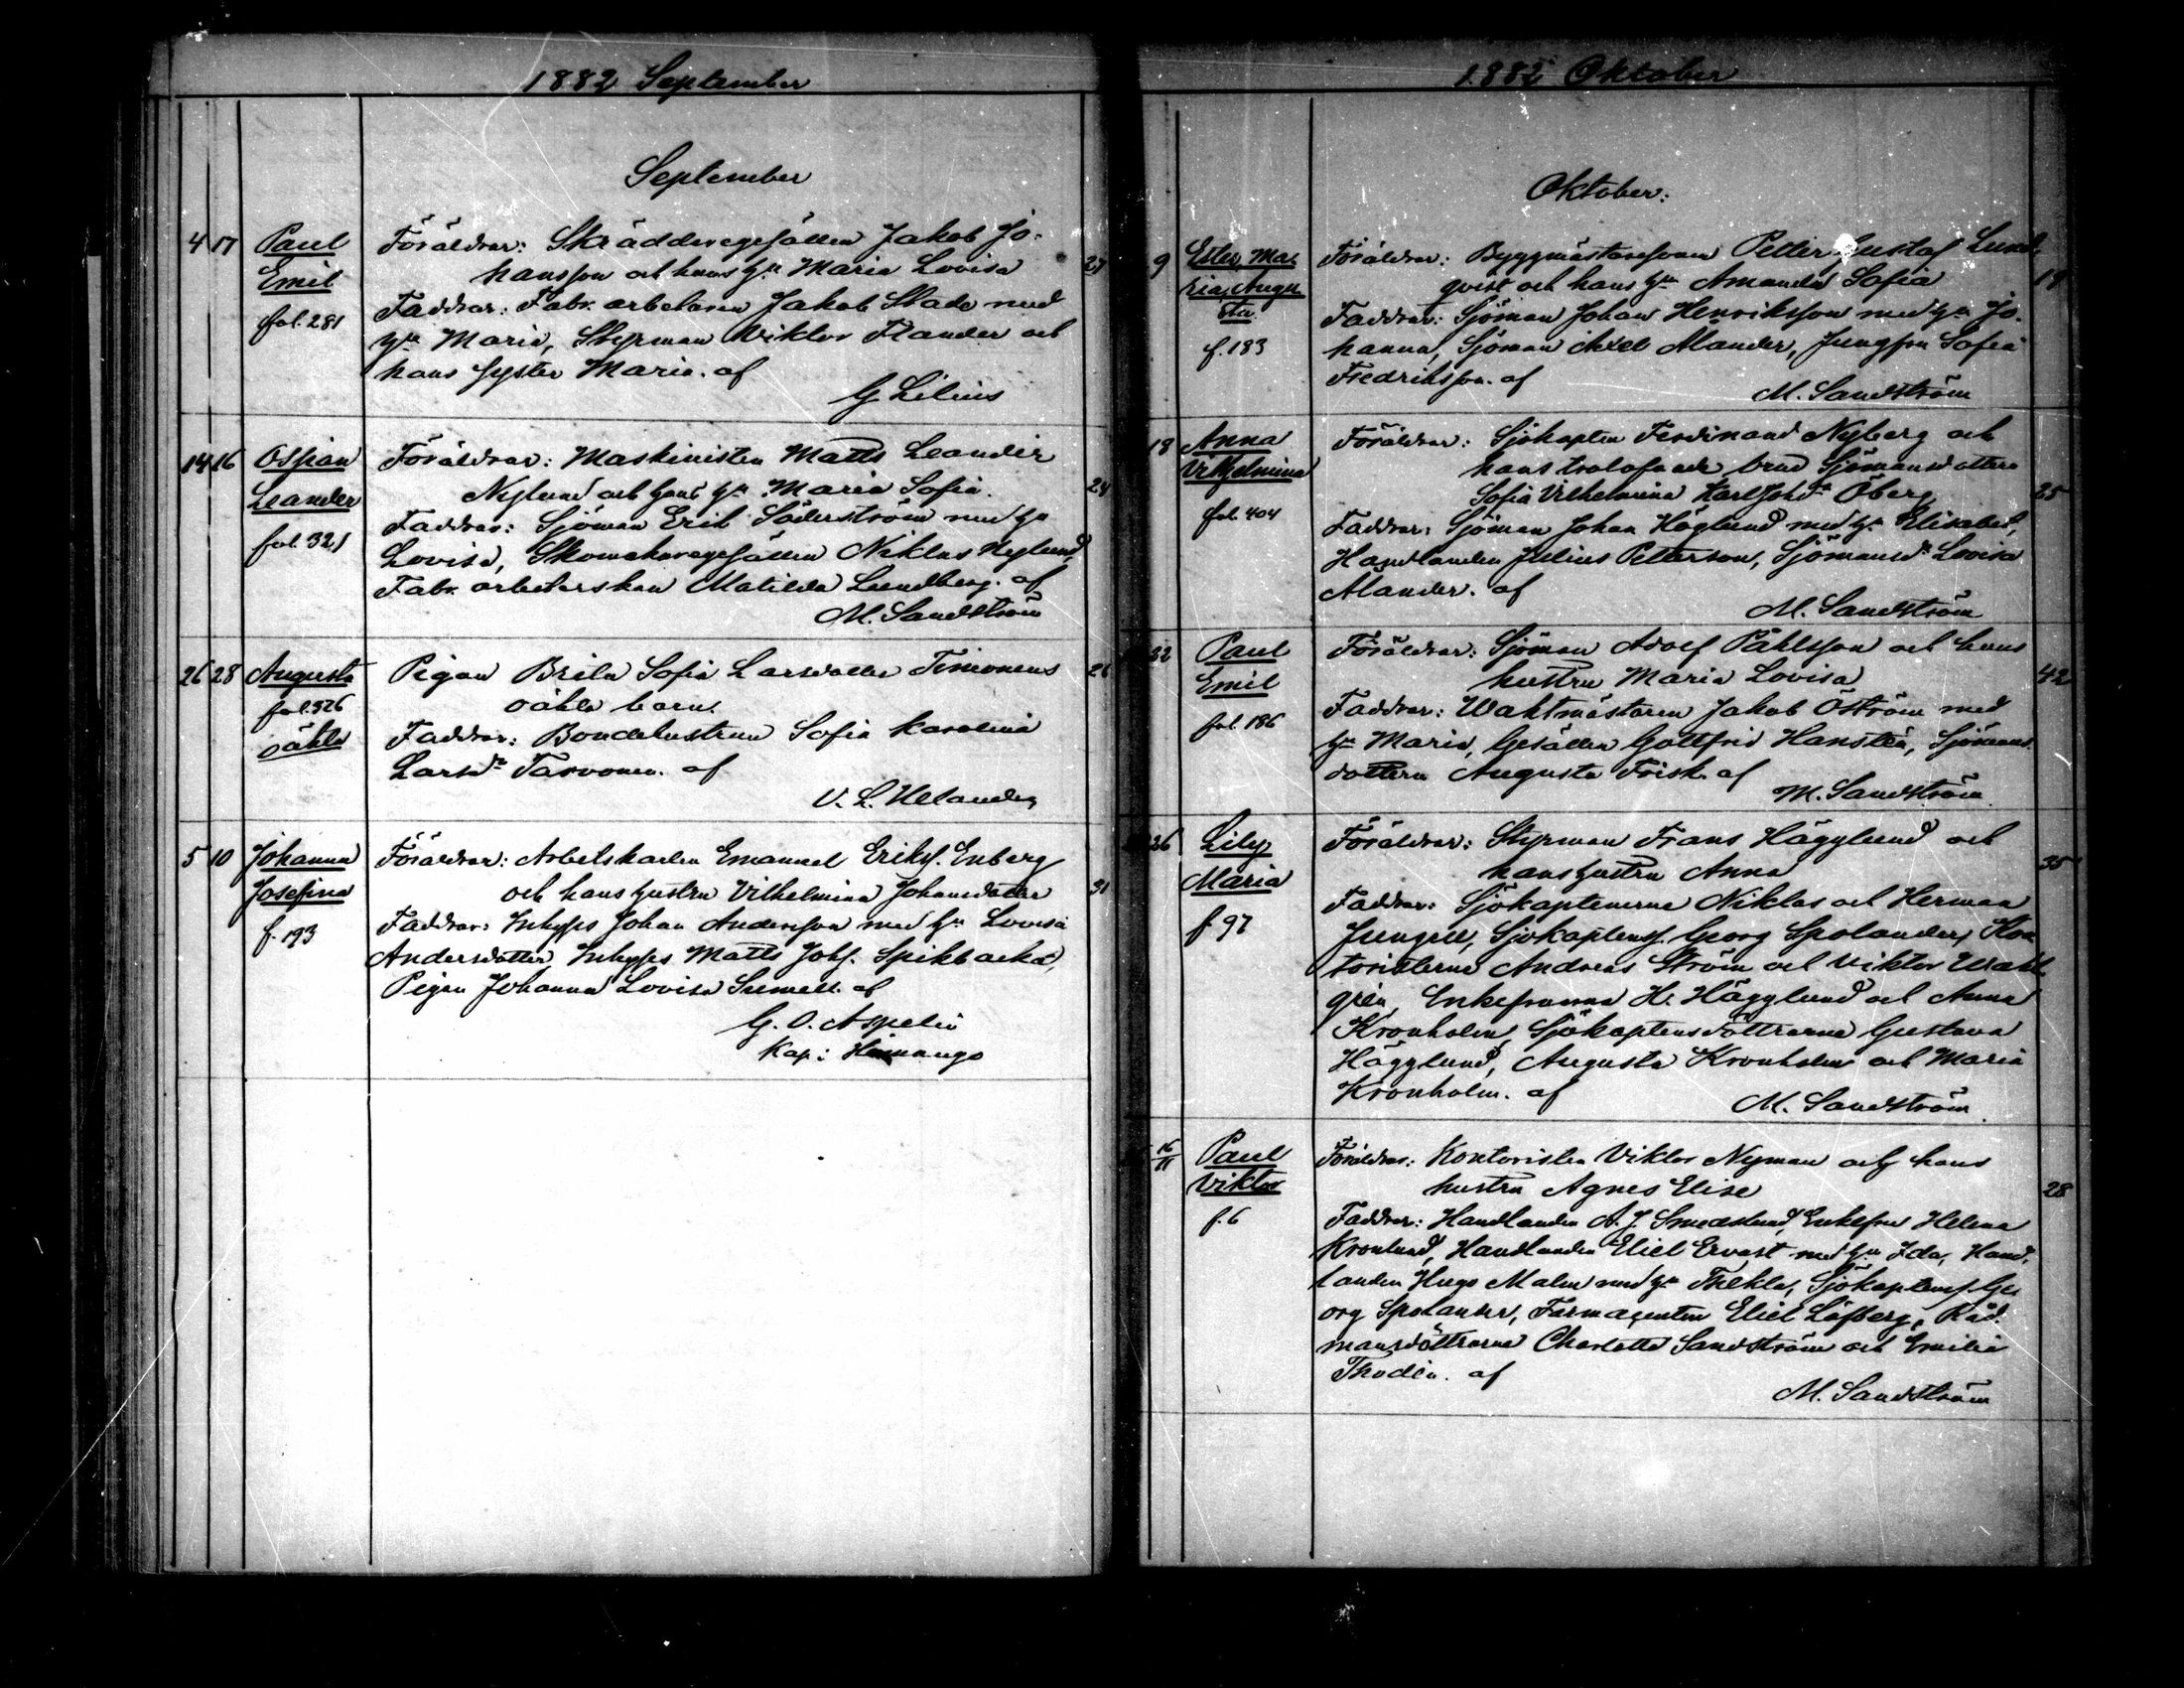 1882 September
September
4 17 Paul Föräldrar: Skräddaregesällen Jakob Jo-
Emil hansson och hans h:u Maria Lovisa 27
fol. 281 Faddrar: Fabr. arbetaren Jakob Stade med
h:u Maria, Styrman Viktor Flander och
hans syster Maria. af
G. Lilius
14 16 Ossian Föräldrar: Maskinisten Matts Leander
Leander Nylund och hans h:u Maria Sofia. 24
fol. 321 Faddrar: Sjöman Erik Söderström med h:u
Lovisa, Skomakaregesällen Niklas Nylund,
Fabr. arbeterskan Matilda Lundberg. af
M. Sandström
26 28 Augusta Pigan Brita Sofia Larsdotter Timonens 26
fol. 326 oäkta barn.
oäkta Faddrar: Bondehustrun Sofia Karolina
Larsd:r Tarvonen. af
V. L. Helander
5 10 Johanna Föräldrar: Arbetskarlen Emanuel Eriks. Enberg
Josefina och hans hustru Vilhelmina Johansdotter 31
f. 193 Faddrar: Inhyses Johan Andersson med h:u Lovisa
Andersdotter, Inhyses Matts Johs. Spikbacka,
Pigan Johanna Lovisa Sumell. af
G. O. Aspelin
Kap. i Himango
1882 Oktober
Oktober:
9 Ester Ma- Föräldrar: Byggmästaresonen Petter Gustaf Lund-
ria Augu- qvist och hans h:u Amanda Sofia 19
sta. Faddrar: Sjöman Johan Henriksson med h:u Jo-
f. 183 hanna, Sjöman Axel Ålander, Jungfru Sofia
Fredriksson. af
M. Sandström
18 Anna Föräldrar: Sjökapten Ferdinand Nyberg och
Vilhelmina hans trolofvade brud Sjömansdottern
Sofia Vilhelmina Karl Joh. d:r Öberg 25
fol. 404 Faddrar: Sjöman Johan Höglund med h:u Elisabet,
Handlanden Julius Petterson, Sjömansd:r Lovisa
Ålander. af
M. Sandström
22 Paul Föräldrar: Sjöman Adolf Påhlsson och hans
Emil hustru Maria Lovisa 42
fol. 186 Faddrar: Waktmästaren Jakob Öström med
h:u Maria, Gesällen Gottfrid Hanstén, Sjömans-
dottern Augusta Frisk. af
M. Sandström
26 Lily Föräldrar: Styrman Frans Hägglund och
Maria hans hustru Anna 35
f. 97 Faddrar: Sjökaptenerne Niklas och Herman
Jungell, Sjökaptenss. Georg Spolander, Kon-
toristerne Andreas Ström och Viktor Wahl-
grén, Enkefruarna H. Hägglund och Anna
Kronholm, Sjökaptensdöttrarne Gustava
Hägglund, Augusta Kronholm och Maria
Kronholm. af
M. Sandström
16/11 Paul Föräldrar: Kontoristen Viktor Nyman och hans
Viktor hustru Agnes Elise 28
f. 6 Faddrar: Handlanden A. J. Smedslund, Enkefru Helena
Kronlund, Handlanden Eliel Ervast med h:u Ida, Hand-
landen Hugo Malm med h:u Thekla, Sjökaptenss. Ge-
org Spolander, Farmagenten Eliel Löfberg, Råd-
mansdöttrarne Charlotta Sandström och Emilia
Thodén. af
M. Sandström